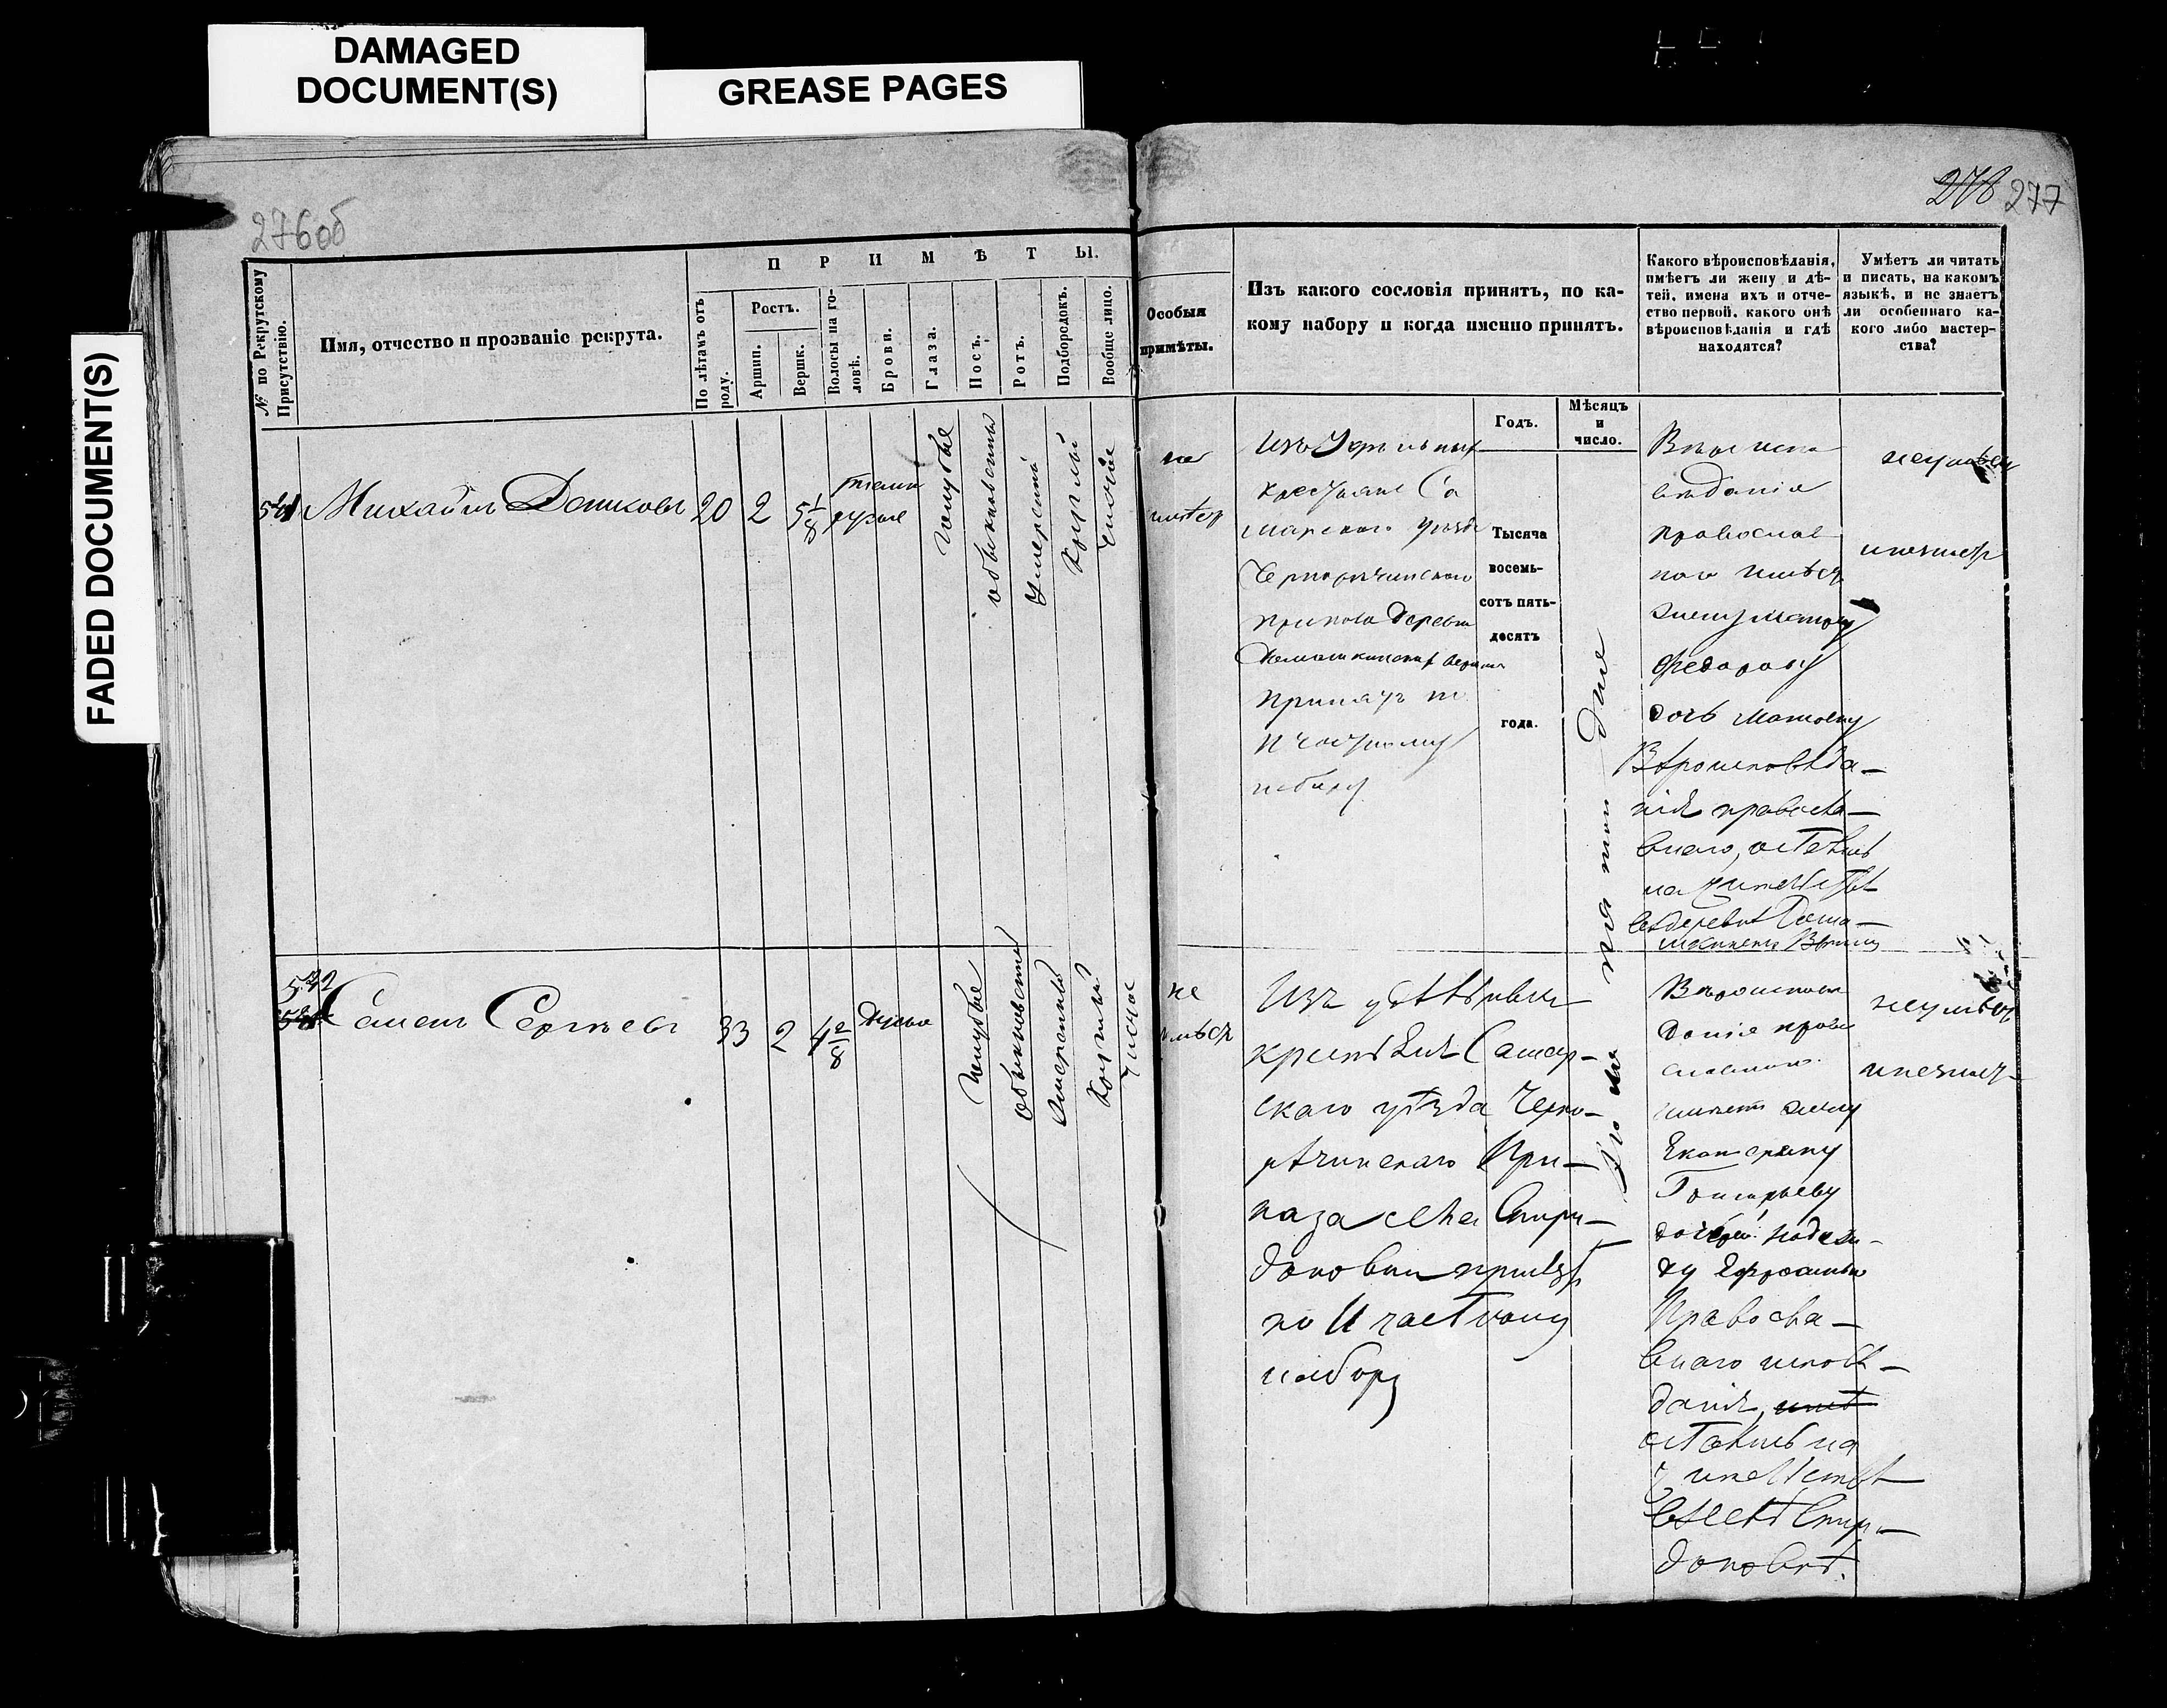 DAMAGED
DOCUMENT(S)
GREASE PAGES
FADED DOCUMENT(S)
276об
278 277
№ по Рекрутскому
Присутствію.
Имя, отчество и прозваніе рекрута.
ПРИМѢТЫ.
По лѣтамъ отъ
роду.
Ростъ.
Аршин.
Вершк.
Волосы на го-
ловѣ.
Брови.
Глаза.
Носъ.
Ротъ.
Подбородокъ.
Вообще лицо.
Особыя
примѣты.
Изъ какого сословія принятъ, по ка-
кому набору и когда именно принятъ.
Какого вѣроисповѣданія,
имѣетъ ли жену и дѣ-
тей, имена ихъ и отче-
ство первой, какого онѣ
вѣроисповѣданія и гдѣ
находятся?
Умѣетъ ли читать
и писать, на какомъ
языкѣ, и не знаетъ
ли особеннаго ка-
кого либо мастер-
ства?
Годъ.
Мѣсяцъ
и
число.
Тысяча
восемь-
сотъ пять-
десятъ
года.
541 Михаилъ Дениковъ 20 2 5 1/8
темно
русые
голубые
обыкновенный
умеренный
круглый
чистое
не
имѣет
Изъ Удѣльных
крестьянъ Са
марского уѣзда
Чернорѣчинского
приказа деревни
принятъ по
II частному
набору
Вѣроиспо
вѣданія
православ
ного имѣет
жену Матрену
Федорову
дочь Матрену
Вѣроисповѣда-
нія правосла-
внаго, оставилъ
на жительствѣ
въ деревнѣ
неумѣет
и незнает
542
Семенъ Сергѣевъ 33 2 4 2/8
русые
голубые
обыкновенный
умеренный
круглый
чистое
не
имѣет
Изъ удѣльныхъ
крестьянъ Самар-
скаго уѣзда Черно-
рѣчинскаго При-
каза села Спири-
доновки принятъ
по II частному
набору
Вѣроиспове
данія право
славнаго
имѣетъ жену
Екатерину
Григорьеву
дочерей Надеж-
ду Ефросинью
Правосла-
внаго исповѣ-
данія, имѣ
оставилъ на
жительствѣ
въ селѣ Спири-
доновкѣ.
неумѣет
и незнает